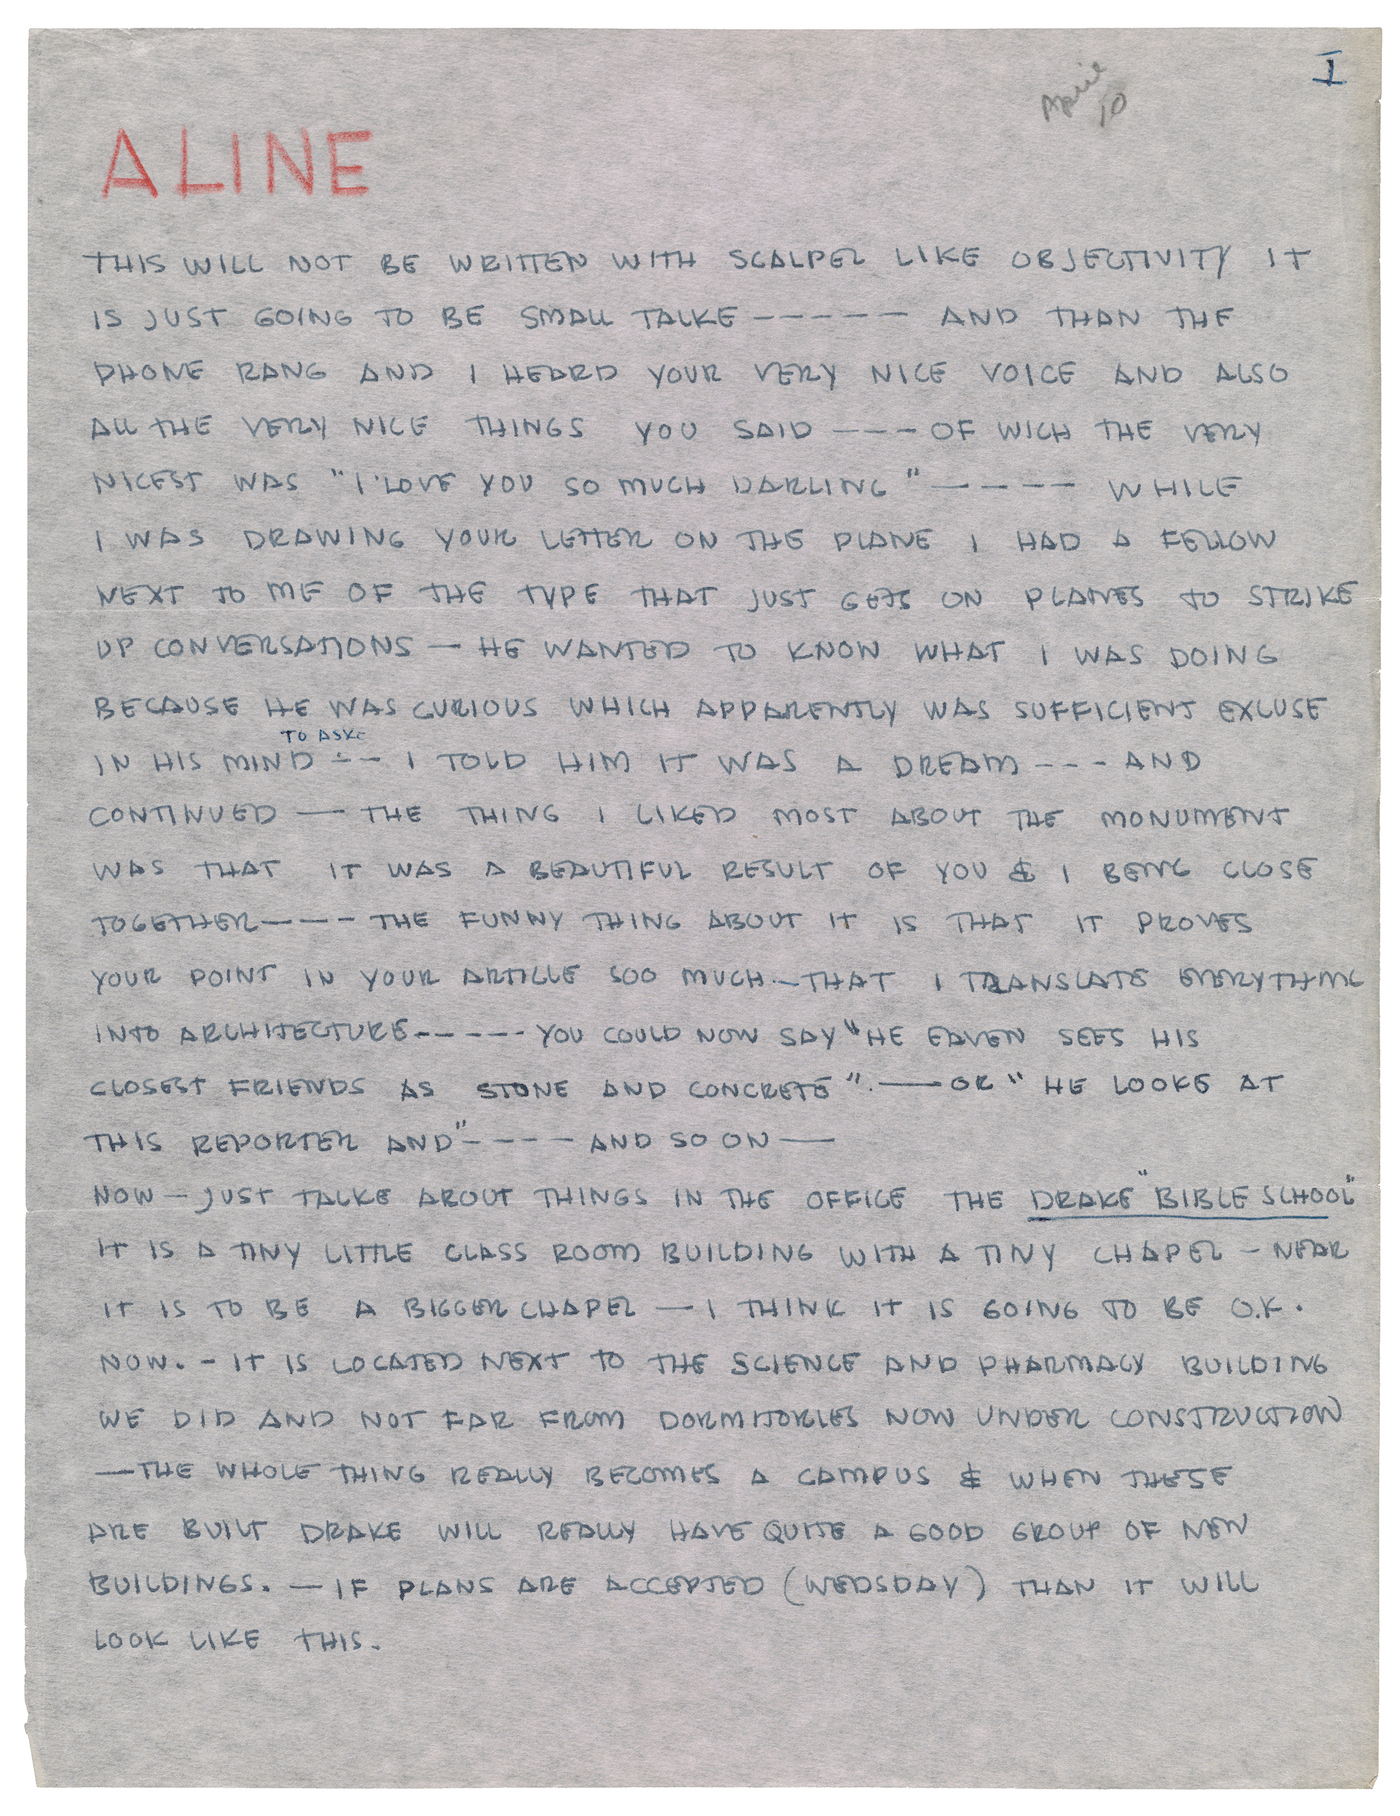 I
April
10
ALINE
THIS WILL NOT BE WRITTEN WITH SCALPEL LIKE OBJECTIVITY IT
IS JUST GOING TO BE SMALL TALKE ----- AND THAN THE
PHONE RANG AND I HEARD YOUR VERY NICE VOICE AND ALSO
ALL THE VERY NICE THINGS YOU SAID --- OF WICH THE VERY
NICEST WAS "I'LOVE YOU SO MUCH DARLING" ---- WHILE
I WAS DRAWING YOUR LETTER ON THE PLANE I HAD A FELLOW
NEXT TO ME OF THE TYPE THAT JUST GETS ON PLANES TO STRIKE
UP CONVERSATIONS — HE WANTED TO KNOW WHAT I WAS DOING
BECAUSE HE WAS CURIOUS WHICH APPARENTLY WAS SUFFICIENT EXCUSE
TO ASKE
IN HIS MIND -- I TOLD HIM IT WAS A DREAM --- AND
CONTINUED — THE THING I LIKED MOST ABOUT THE MONUMENT
WAS THAT IT WAS A BEAUTIFUL RESULT OF YOU & I BEING CLOSE
TOGETHER ---- THE FUNNY THING ABOUT IT IS THAT IT PROVES
YOUR POINT IN YOUR ARTICLE SOO MUCH -- THAT I TRANSLATE EVERYTHING
INTO ARCHITECTURE ----- YOU COULD NOW SAY "HE EAVEN SEES HIS
CLOSEST FRIENDS AS STONE AND CONCRETE". — OR "HE LOOKE AT
THIS REPORTER AND" ---- AND SO ON —
NOW — JUST TALKE ABOUT THINGS IN THE OFFICE THE DRAKE "BIBLE SCHOOL"
IT IS A TINY LITTLE CLASS ROOM BUILDING WITH A TINY CHAPEL — NEAR
IT IS TO BE A BIGGER CHAPEL — I THINK IT IS GOING TO BE O.K.
NOW. - IT IS LOCATED NEXT TO THE SCIENCE AND PHARMACY BUILDING
WE DID AND NOT FAR FROM DORMITORIES NOW UNDER CONSTRUCTION
— THE WHOLE THING REALLY BECOMES A CAMPUS & WHEN THESE
ARE BUILT DRAKE WILL REALLY HAVE QUITE A GOOD GROUP OF NEW
BUILDINGS. — IF PLANS ARE ACCEPTED (WEDSDAY) THAN IT WILL
LOOK LIKE THIS.